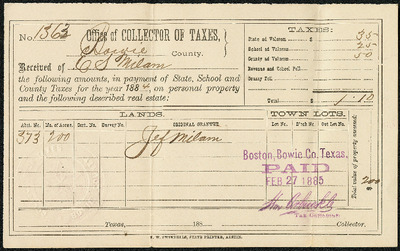 No. 1363 Office of COLLECTOR OF TAXES,
Bowie County.
Received of C S Milam
the following amounts, in payment of State, School and
County Taxes for the year 1884, on personal property
and the following described real estate:
TAXES:
State ad Valorem 35
School ad Valorem 25
County ad Valorem 50
Revenue and School Poll
County Poll
Total $ 1.10
LANDS. TOWN LOTS.
Abst. No. No. of Acres. Cert. No. Survey No. ORIGINAL GRANTEE. Lot No. Block No. Out Lot No.
373 200 Jef Milam
Total value of property assessed:
200
Boston, Bowie Co. Texas,
PAID
FEB 27 1885
Tax Collector.
Texas, 188 Collector.
E. W. SWINDELLS, STATE PRINTER, AUSTIN.